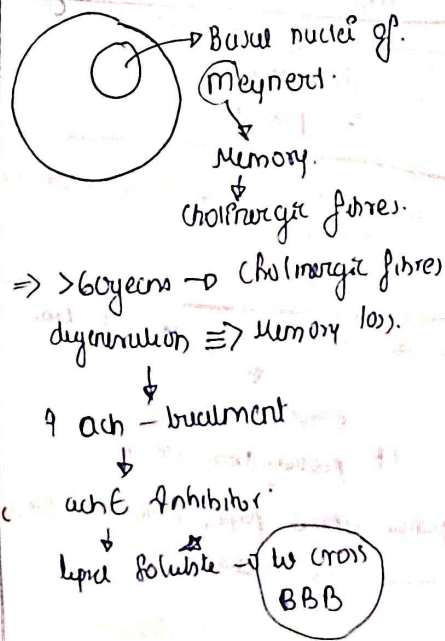 → Basal nuclei of.
Meynert.
Memory.
Cholinergic fibres.
⇒ >60years → Cholinergic fibres
degeneration ≡> Memory loss.
↑ ach - treatment
achE Inhibitor.
lipid Soluble → to cross
BBB